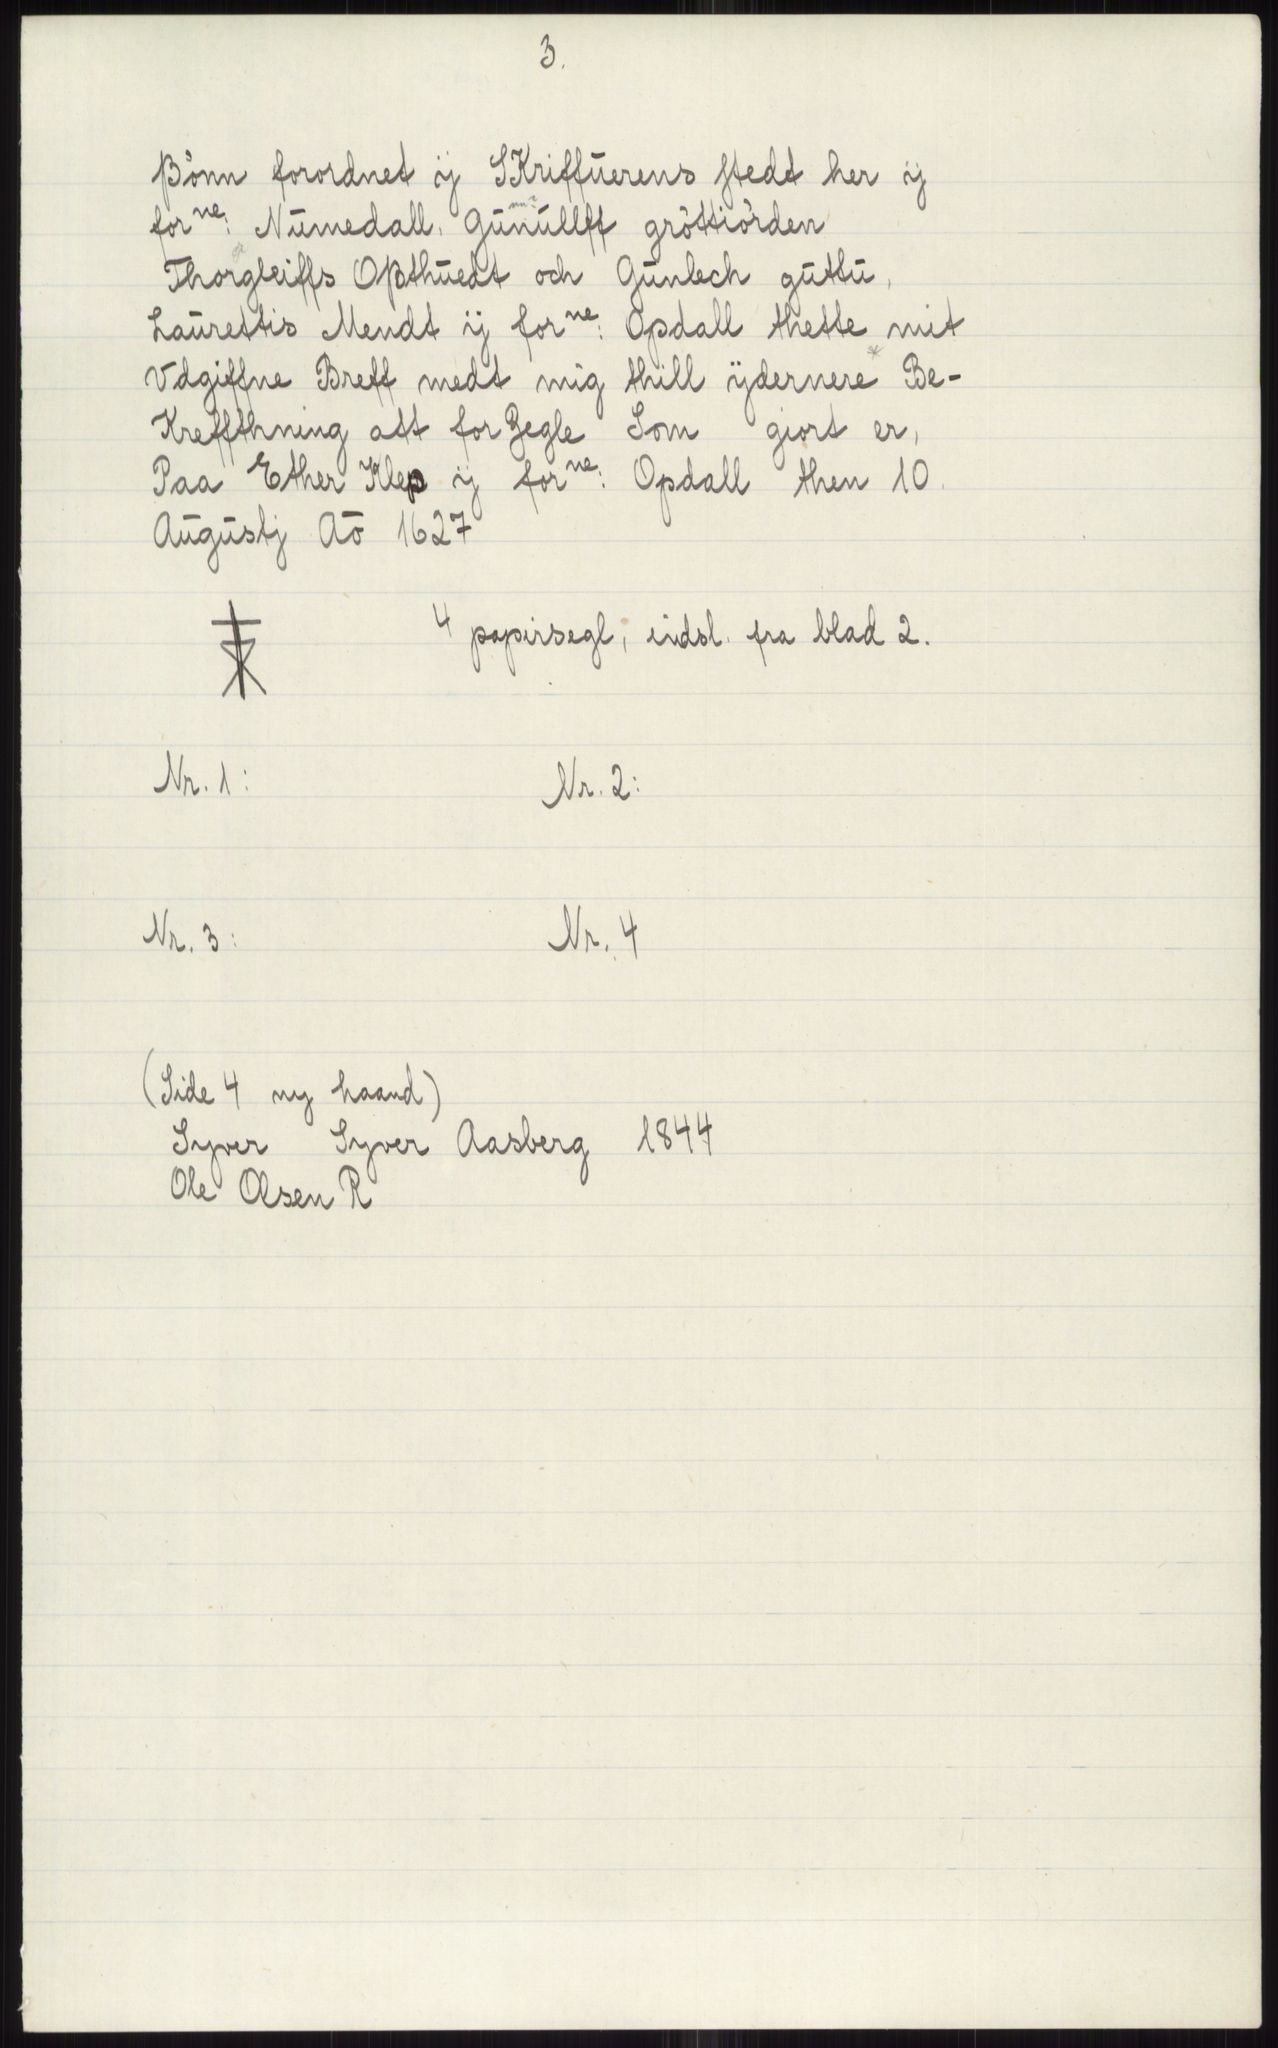 3.
ßönn forordnet ÿ SKriffūerens stedt her ÿ
for ne: Nūmedall, Gūnūllff gröttiörden
Thorgleiffs Opsthuedt och Gūnlech gūttū,
Laūrettis Mendt ÿ for ne: Opdall thette mit
Vdgiffne Breff medt mig thill ÿdernere Be-
Kreffthning att for Zegle Som giort er,
Paa Ether Klep ÿ for ne: Opdall then 10.
Aūgūstj Aō 1627
4 papirsegl, indsl. fra blad 2.
Nr. 1: Nr. 2:
Nr. 3: Nr. 4
(Side 4 ny haand)
Syver Syver Aasberg 1844
Ole Olsen R